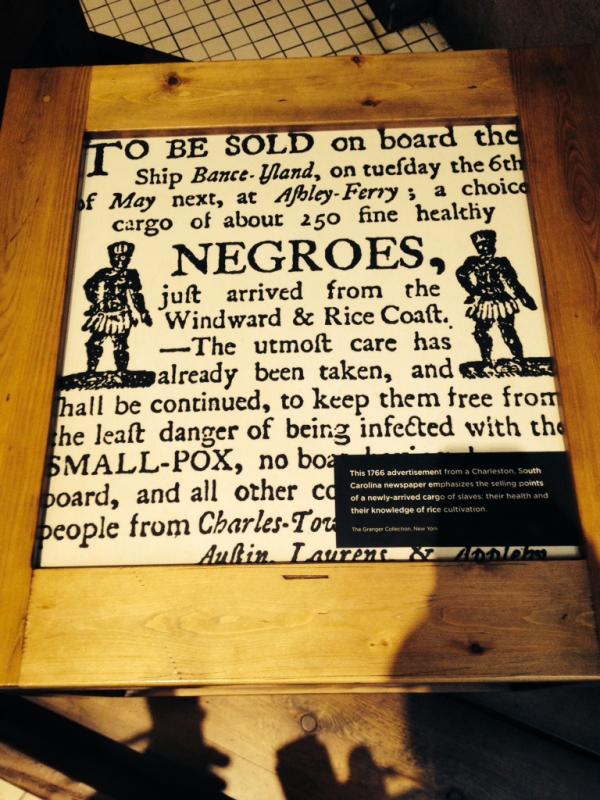 TO BE SOLD on board the
Ship Bance-Yſland, on tueſday the 6th
of May next, at Aſhley-Ferry; a choice
cargo of about 250 fine healthy
NEGROES,
juſt arrived from the
Windward & Rice Coaſt.
—The utmoſt care has
already been taken, and
ſhall be continued, to keep them free from
the leaſt danger of being infected with the
SMALL-POX, no
board, and all other
people from Charles-Tow
Auſtin, Laurens, & Appleby
This 1766 advertisement from a Charleston, South
Carolina newspaper emphasizes the selling points
of a newly-arrived cargo of slaves: their health and
their knowledge of rice cultivation.
The Granger Collection, New York